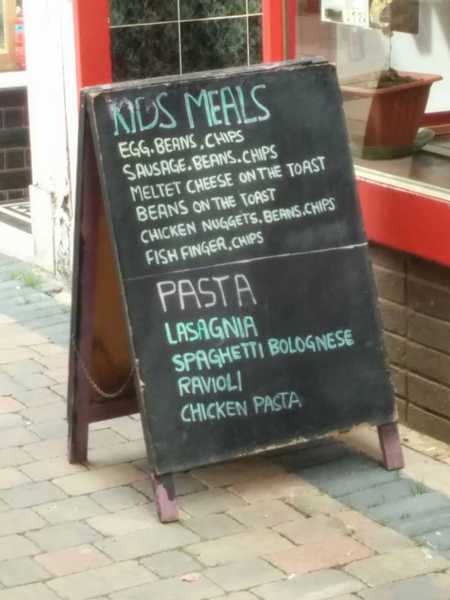 KIDS MEALS
EGG.BEANS.CHIPS
SAUSAGE.BEANS.CHIPS
MELTET CHEESE ON THE TOAST
BEANS ON THE TOAST
CHICKEN NUGGETS.BEANS.CHIPS
FISH FINGER.CHIPS
PASTA
LASAGNIA
SPAGHETTI BOLOGNESE
RAVIOLI
CHICKEN PASTA